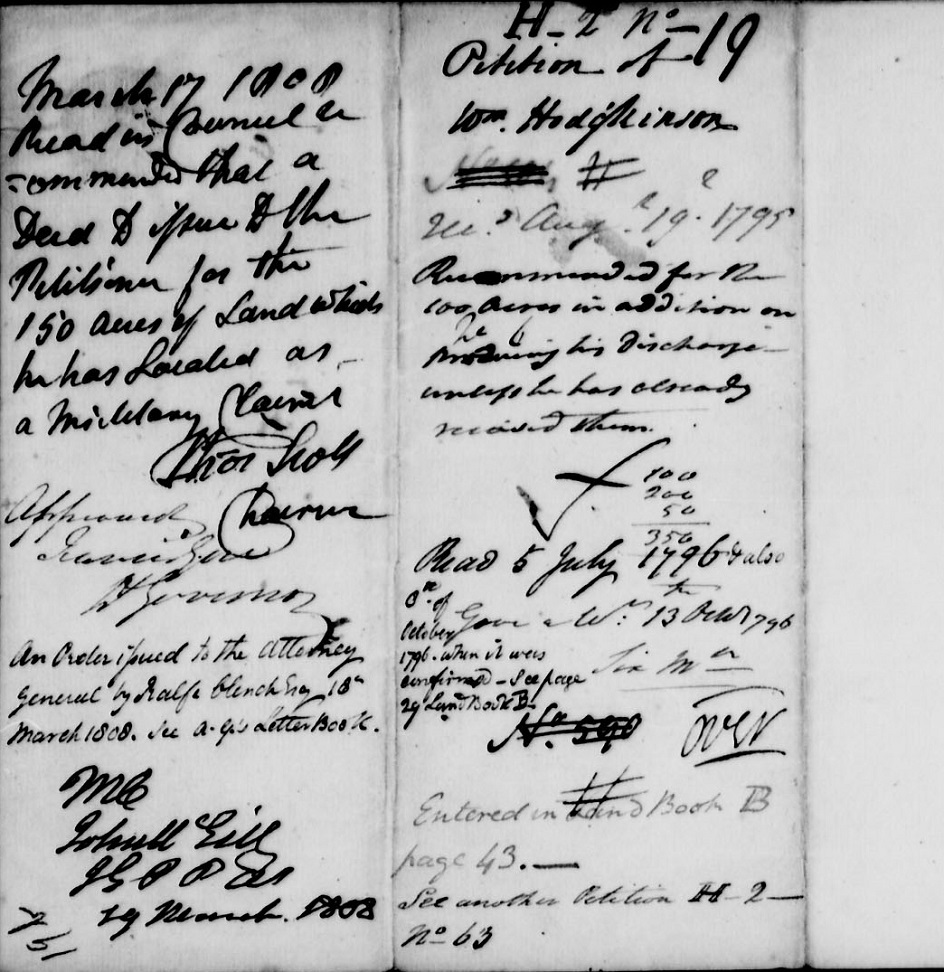 March 17 1808
Read in Council re
=commended that a
Deed D issue D the
Petitioner for the
150 acres of Land which
he has Located as
a Military Claimt
Thos Scott
Chairman
Approved
Francis Gore
Lt Governor
An Order issued to the Attorney
General by Ralfe Clench Esq 18th
March 1808. See A. G's Letter Book.
19 March. 1808
H-2 No-19
Petition of
Wm. Hodgkinson
Rec.d Augt 19. 1795
Recommended for the
100 Acres in addition on
producing his Discharge
unless he has already
received them.
100
200
50
350
Read 5 July 1796 & also
8th of
October
1796. when it was
confirmed - See page
29 Land Book B-
Gave a Wt. 13th Octr 1796
Over
No. 590
Entered in Land Book B
page 43.—
See another Petition H-2-
No 63